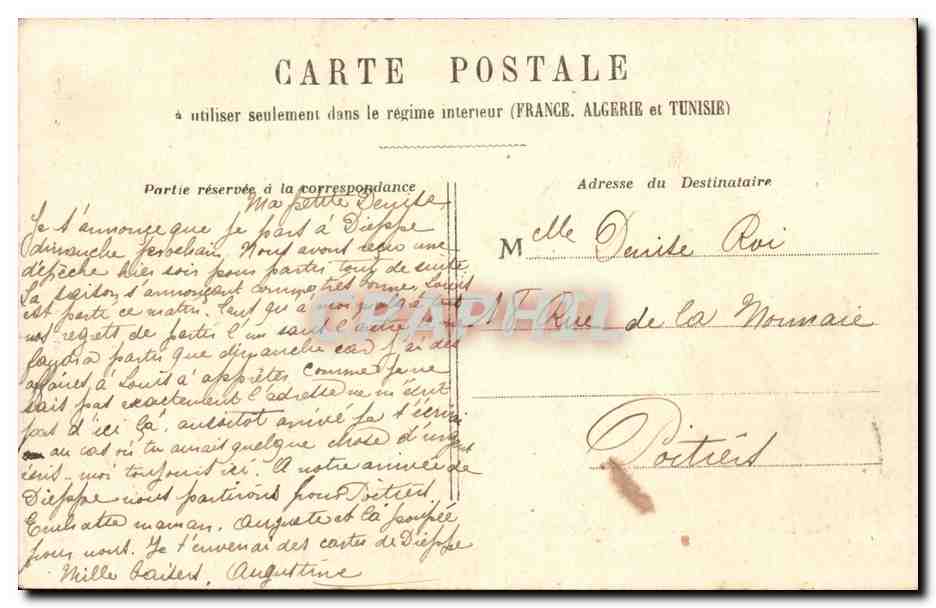 CARTE POSTALE
à utiliser seulement dans le régime intérieur (FRANCE. ALGERIE et TUNISIE)
Partie réservée à la correspondance
Adresse du Destinataire
Ma petite Denise,
Je t'annonce que je pars à Dieppe
dimanche prochain. Nous avons reçu une
dépêche hier soir pour partir tout de suite.
La saison s'annonçant comme très bonne, Louis
est parti ce matin. Tant qu'à moi
nos regrets de partir l'un sans l'autre
partir que dimanche car j'ai des
affaires à Louis à apprêter. Comme je ne
sais pas exactement l'adresse ne m'écrit
pas d'ici là, aussitôt arrivé je t'écrirai
au cas où tu aurais quelque chose d'urgent
écris-moi toujours ici. A notre arrivée de
Dieppe nous partirons pour Poitiers.
Embrasse maman, Auguste et la poupée
pour nous. Je t'enverrai des cartes de Dieppe
Mille baisers, Augustine
Melle Denise Roi
Rue de la Monnaie
Poitiers
CPAPHIL